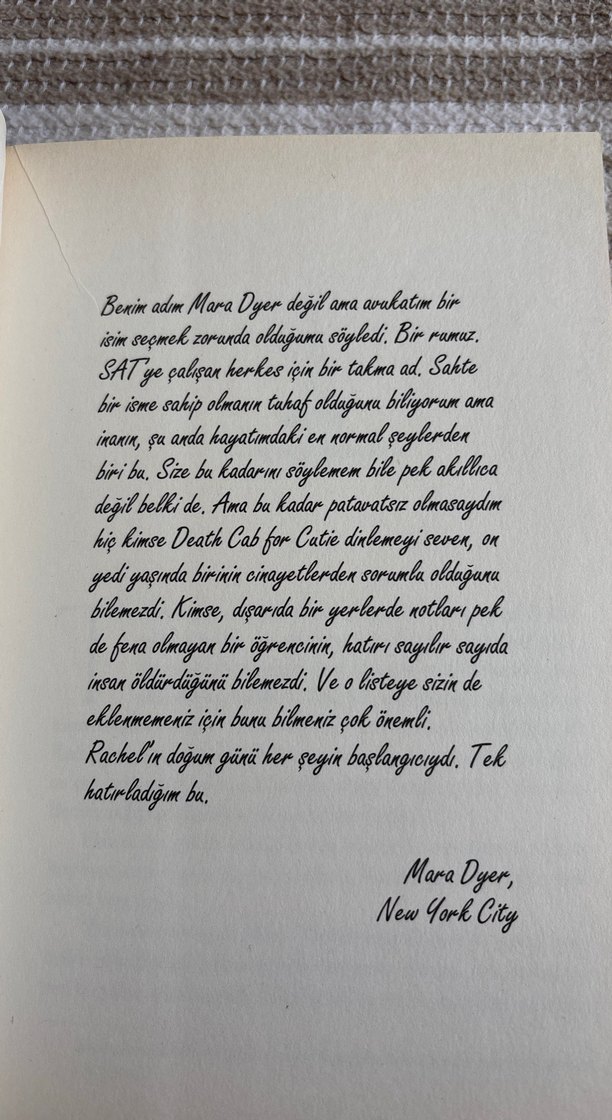 Benim adım Mara Dyer değil ama avukatım bir
isim seçmek zorunda olduğumu söyledi. Bir rumuz.
SAT'ye çalışan herkes için bir takma ad. Sahte
bir isme sahip olmanın tuhaf olduğunu biliyorum ama
inanın, şu anda hayatımdaki en normal şeylerden
biri bu. Size bu kadarını söylemem bile pek akıllıca
değil belki de. Ama bu kadar patavatsız olmasaydım
hiç kimse Death Cab for Cutie dinlemeyi seven, on
yedi yaşında birinin cinayetlerden sorumlu olduğunu
bilemezdi. Kimse, dışarıda bir yerlerde notları pek
de fena olmayan bir öğrencinin, hatırı sayılır sayıda
insan öldürdüğünü bilemezdi. Ve o listeye sizin de
eklenmemeniz için bunu bilmeniz çok önemli.
Rachel'ın doğum günü her şeyin başlangıcıydı. Tek
hatırladığım bu.
Mara Dyer,
New York City